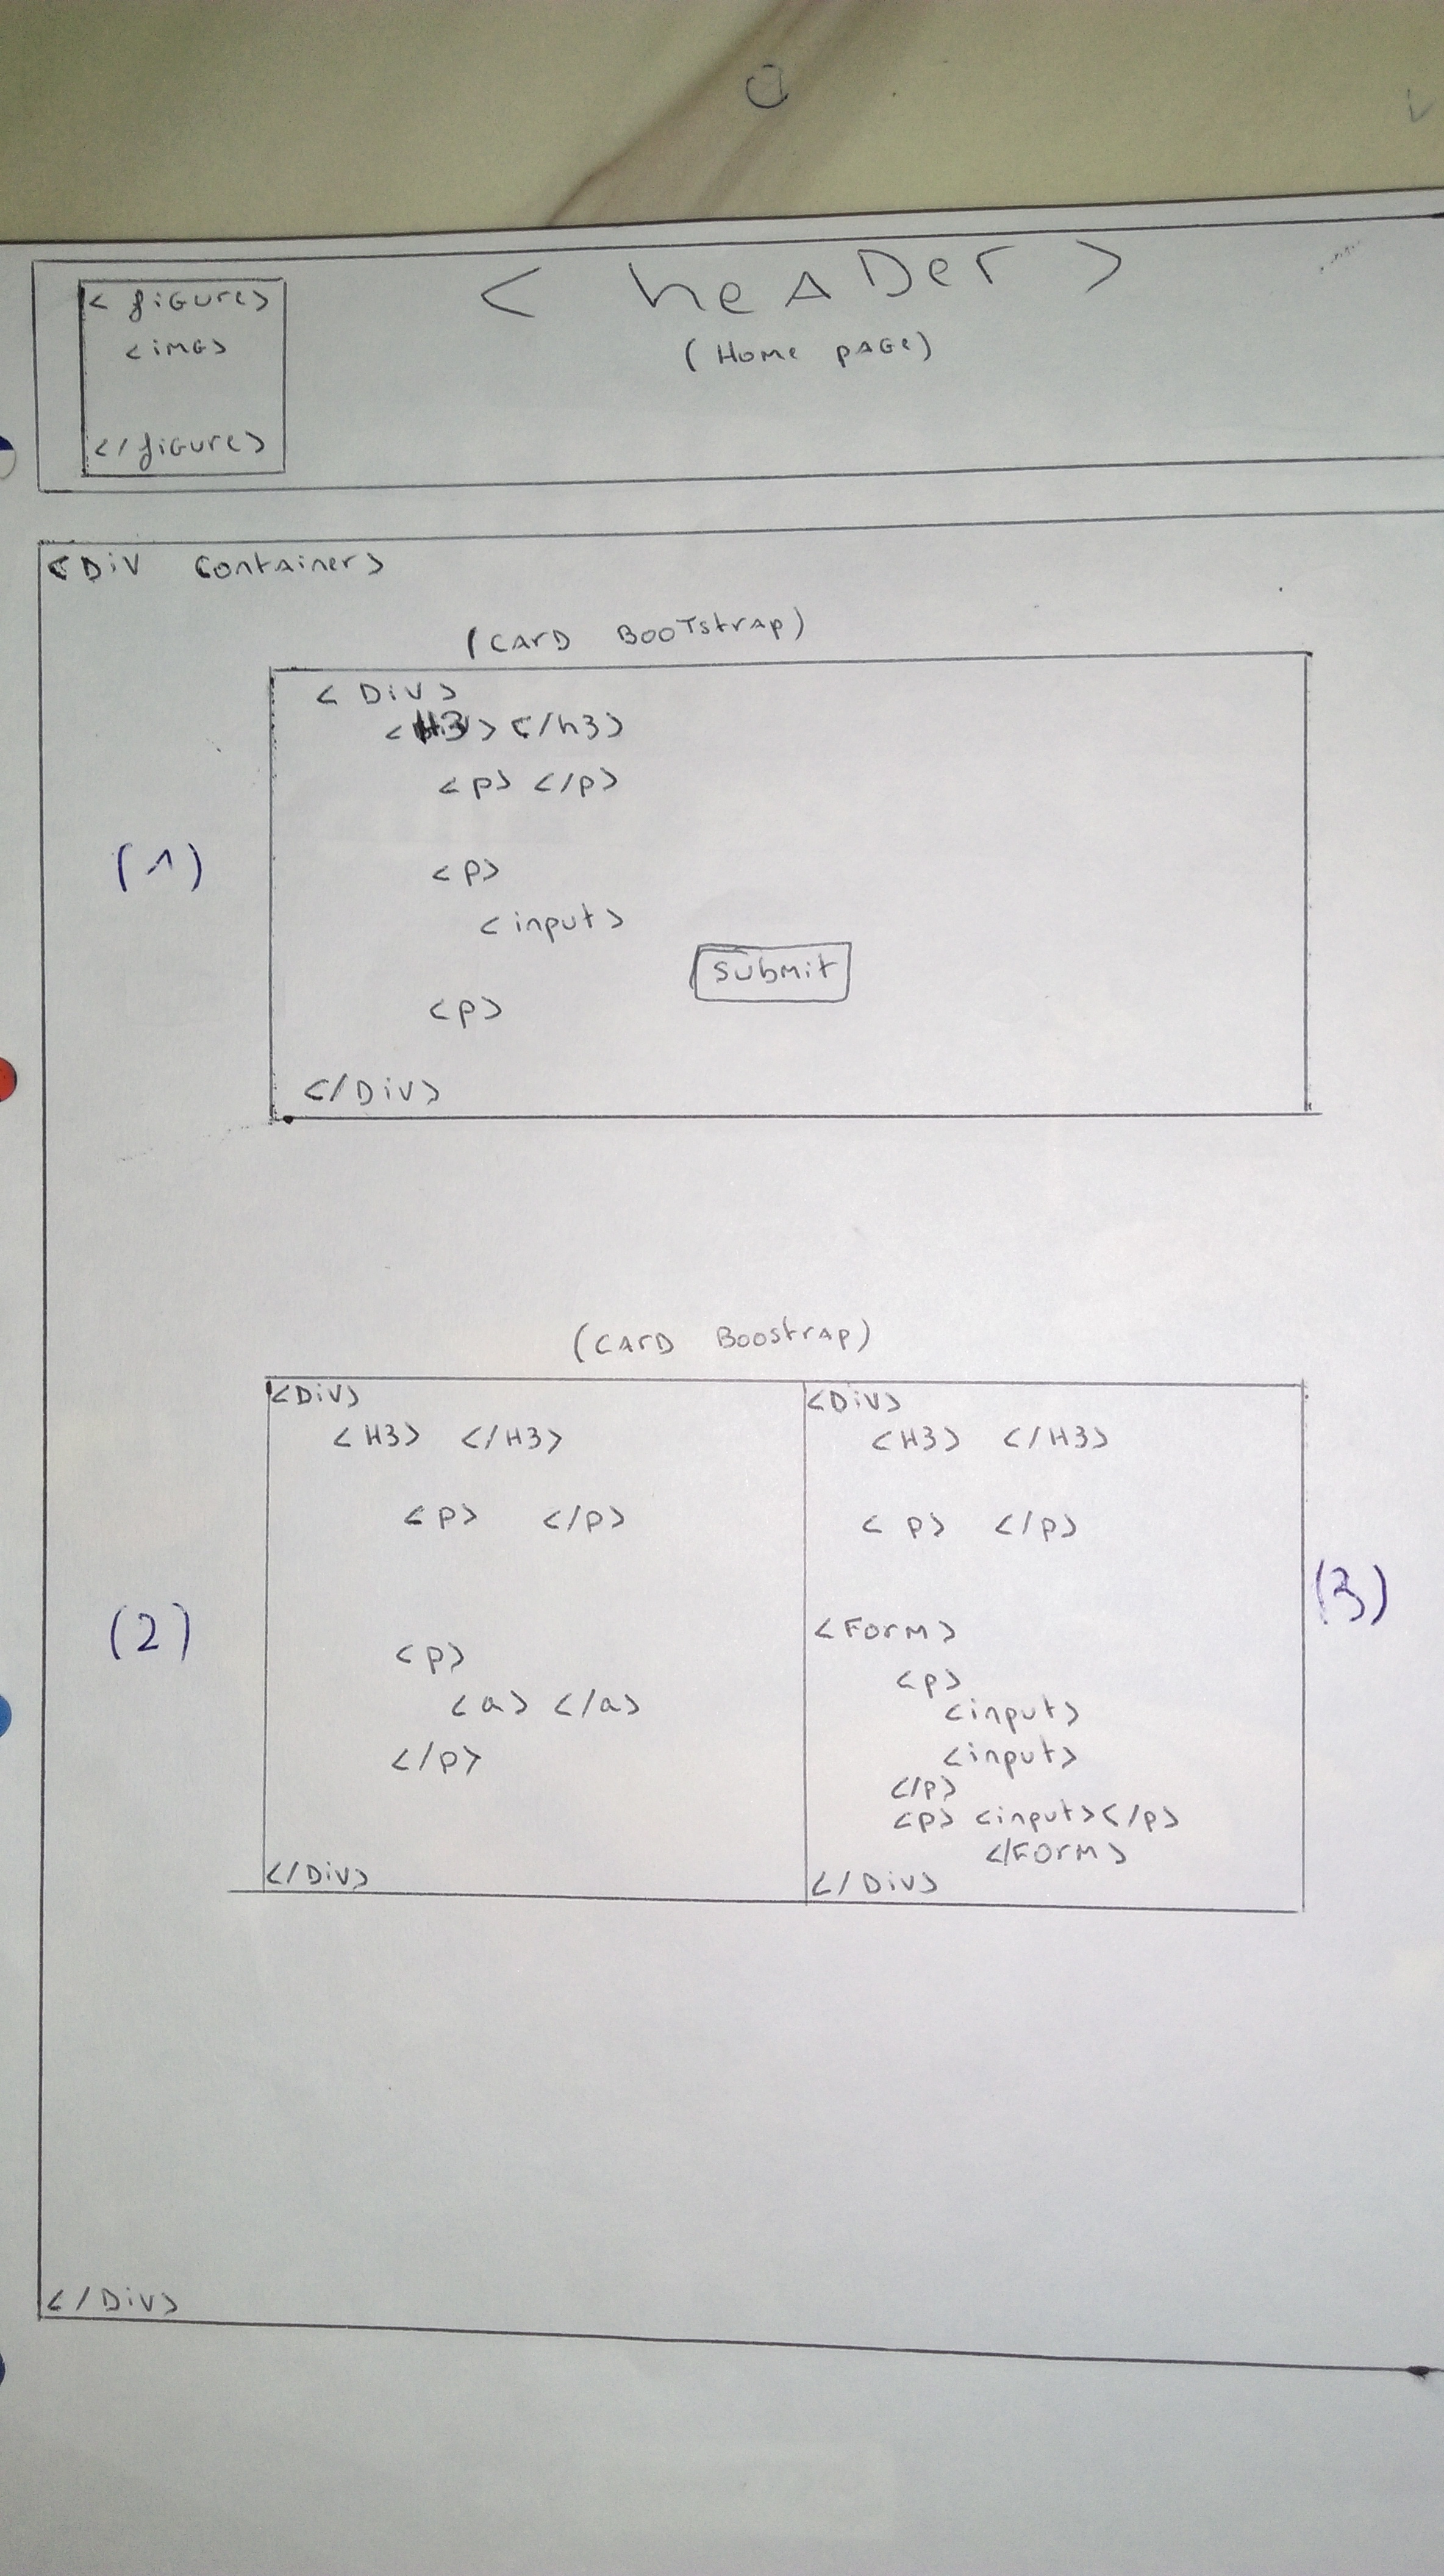 < heADer >
(Home pAGe)
< fiGure>
<iMG>
</fiGure>
<Div Container>
(CArD BooTstrAp)
< Div>
<H3></h3>
<p> </p>
(1)
<p>
<input>
SubMit
<p>
</Div>
(CArD BoostrAp)
<Div>
<H3> </H3>
<p> </p>
(2)
<p>
<a> </a>
</p>
</Div>
<Div>
<H3> </H3>
< p> </p>
(3)
<ForM>
<p>
<input>
<input>
</p>
<p> <input></p>
</ForM>
</Div>
</Div>